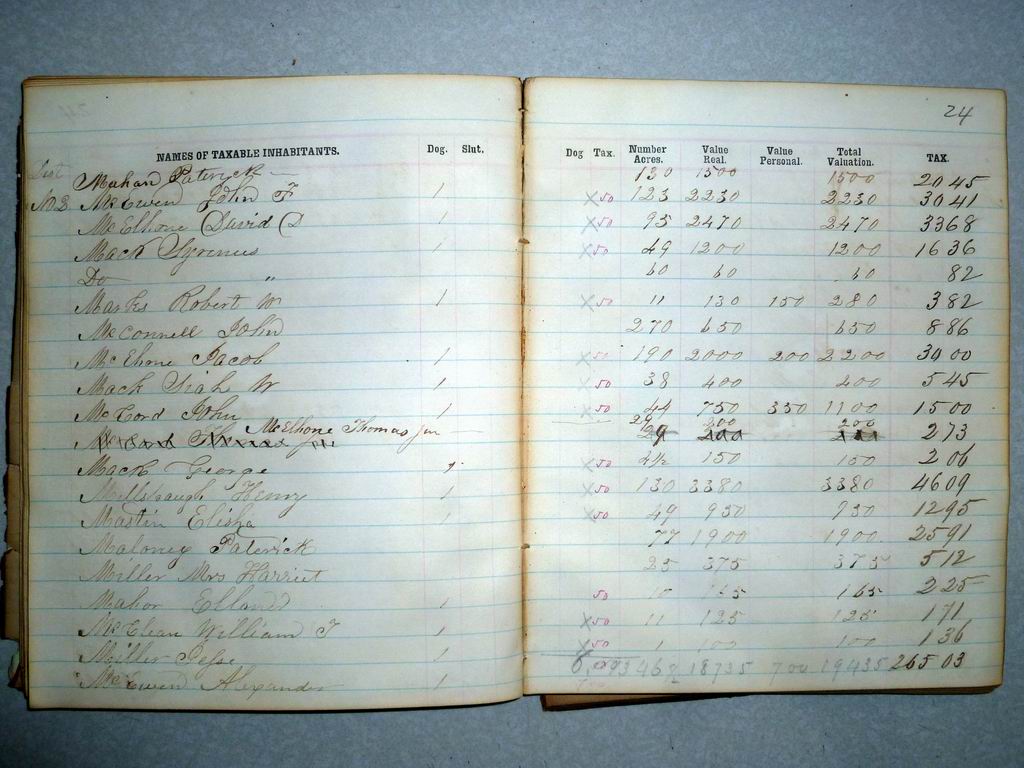 24
NAMES OF TAXABLE INHABITANTS. Dog. Slut. Dog Tax. Number Acres. Value Real. Value Personal. Total Valuation. TAX.
Dist Mahan Paterick 130 1500 1500 20 45
No 2 McEwen John F 1 X 50 123 2230 2230 30 41
McElhone David D 1 X 50 95 2470 2470 33 68
Mack Syrenus 1 X 50 49 1200 1200 16 36
Do " 60 60 60 82
Marks Robert W 1 X 50 11 130 150 280 3 82
McConnell John 270 650 650 8 86
McElhone Jacob 1 X 50 190 2000 200 2200 30 00
Mack Siah W 1 X 50 38 400 400 5 45
McCord John 1 X 50 44 750 350 1100 15 00
McElhone Thomas Jun 29 200 200 2 73
Mack George 1 X 50 150 150 2 06
Millspaugh Henry 1 X 50 130 3380 3380 46 09
Mastin Elisha 1 X 50 49 950 950 12 95
Maloney Paterick 77 1900 1900 25 91
Miller Mrs Harriet 25 375 375 5 12
Mabor 1 50 10 165 165 2 25
McClean William T 1 X 50 11 125 125 1 71
Miller Jesse 1 X 50 1 100 100 1 36
McEwen Alexander 1 18735 700 19435 265 03